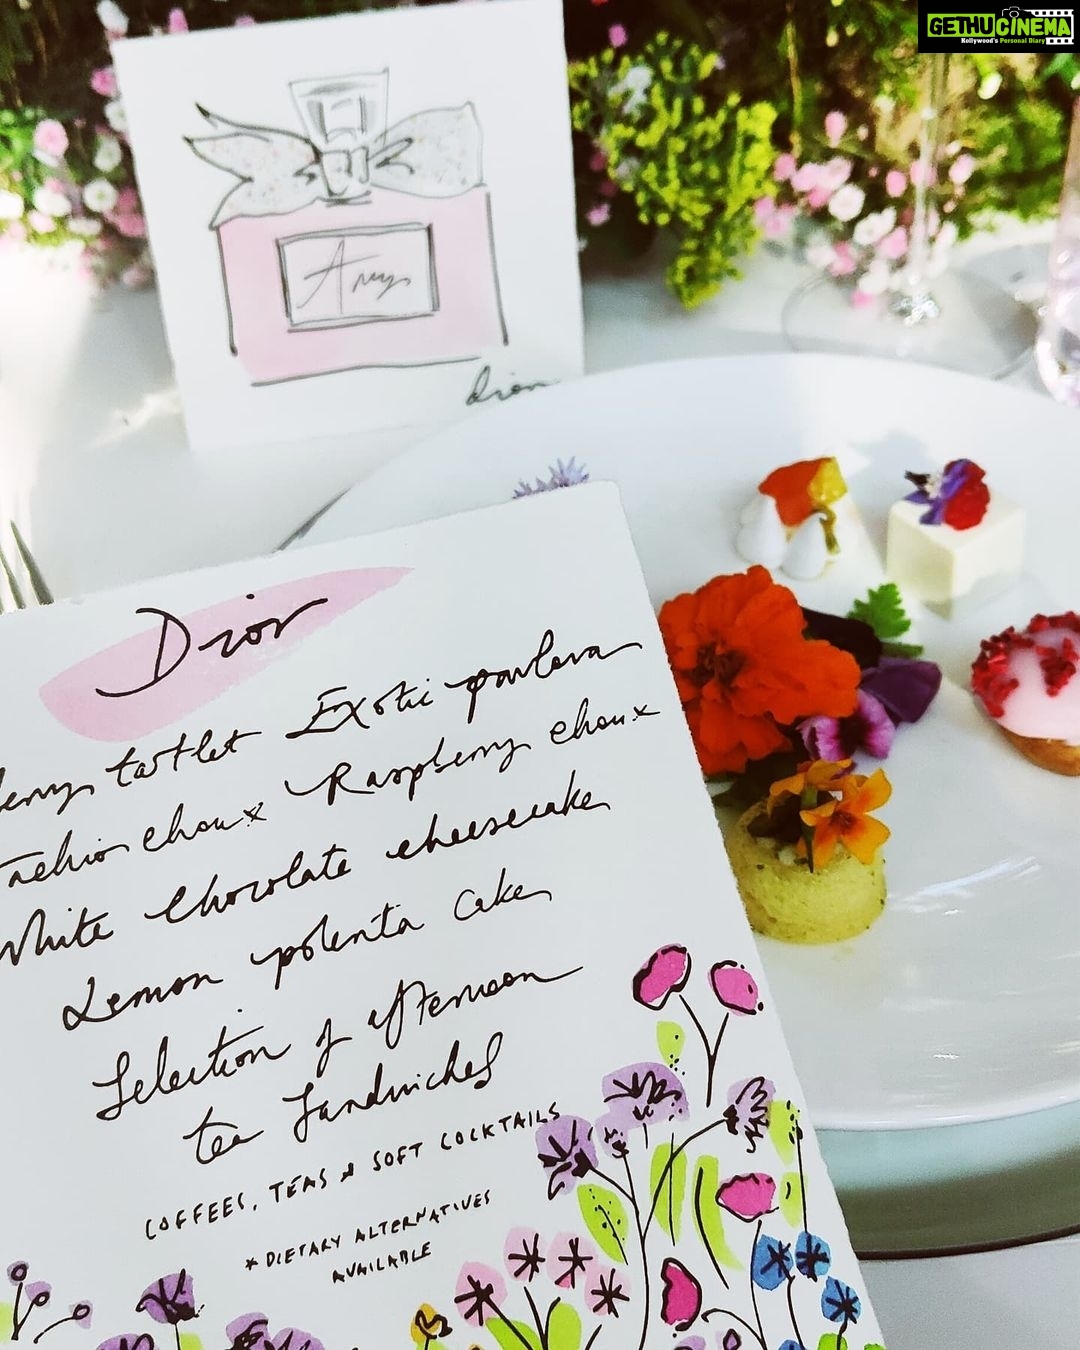 GETHU CINEMA
Kollywood's Personal Diary
Amy
Dior
Dior
tartlet Exotic pavlova
choux Raspberry choux
White Chocolate cheesecake
Lemon polenta cake
Selection of afternoon
tea sandwiches
COFFEES, TEAS & SOFT COCKTAILS
* DIETARY ALTERNATIVES
AVAILABLE